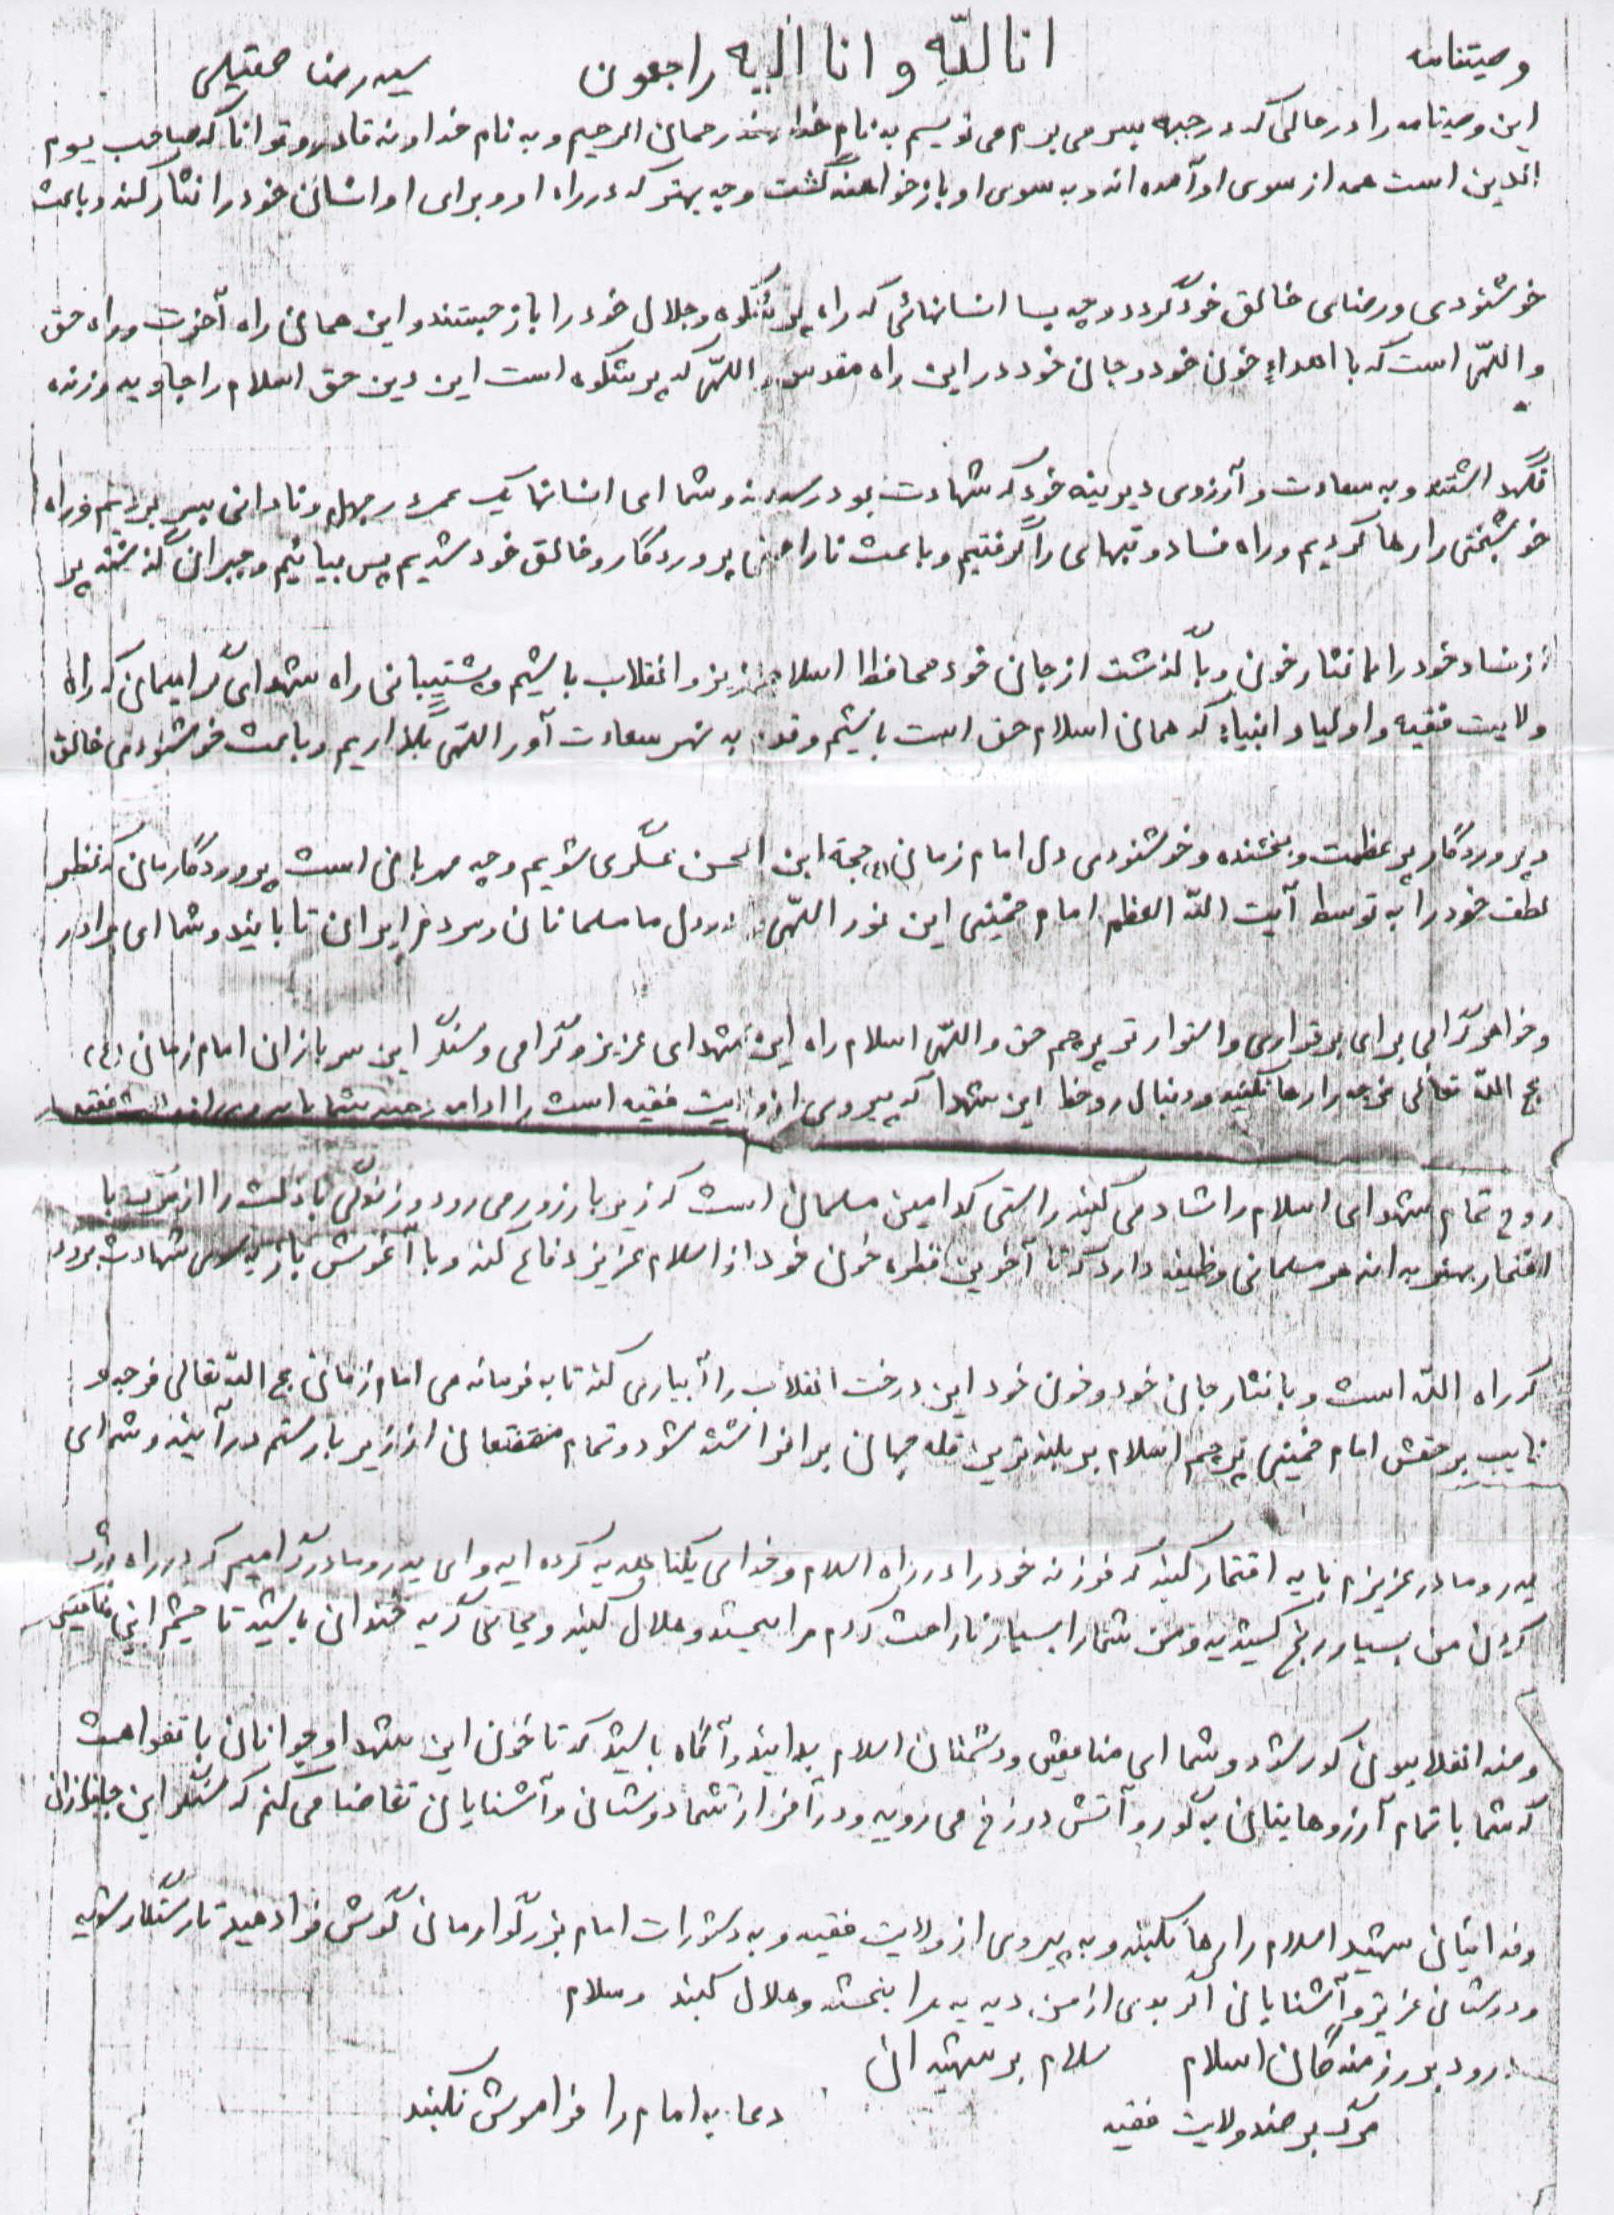 وصیتنامه انا للّه و انا الیه راجعون سید رضا
این وصیتنامه را در حالی که در جبهه بسر می برم می نویسم به نام خداوند رحمان الرحیم و به نام خداوند قادر و توانا که صاحب یوم
الدین است همه از سوی او آمده اند و به سوی او باز خواهند گشت و چه بهتر که در راه او و برای او انسان خود را نثار کند و باعث
خوشنودی و رضای خالق خود گردد و چه بسا انسانهائی که راه پر شکوه و جلال خود را باز جستند و این همان راه آخرت و راه حق
و اللّهی است که با اهداء خون خود و جان خود در این راه مقدس و اللّهی که پر شکوه است این دین حق اسلام را جاوید و زنده
نگهداشتند و به سعادت و آرزوی دیرینه خود که شهادت بود رسیدند و شما ای انسانها یک عمر در جهل و نادانی بسر بردیم و راه
خوشبختی را رها کردیم و راه فساد و تبهای را گرفتیم و باعث ناراحتی پروردگار و خالق خود شدیم پس بیائیم و جبران گذشته پر
از فساد خود را با نثار خون و با گذشت از جان خود محافظ اسلام عزیز و انقلاب باشیم و پشتیبانی راه شهدای گرامیمان که راه
ولایت فقیه و اولیا و انبیاء که همان اسلام حق است باشیم و قدم به نهر سعادت آور اللّهی بگذاریم و باعث خوشنودی خالق
و پروردگار پر عظمت و بخشنده و خوشنودی دل امام زمان (ع) حجة ابن الحسن عسگری شویم و چه مهربان است پروردگارمان که نظر
لطف خود را به توسط آیت اللّه العظم امام خمینی این نور اللّهی در دل ما مسلمانان و مردم ایران تابانید و شما ای برادر
و خواهر گرامی برای برقراری و استوار تر پرچم حق و اللّهی اسلام راه این شهدای عزیز و گرامی و سنگر این سربازان امام زمان (ع)
عج اللّه تعالی فرجه را رها نکنید و دنبال رو خط این شهدا که پیروی از ولایت فقیه است را ادامه دهید شما با پیروی از ولایت فقیه
روح تمام شهدای اسلام را شاد می کنید راستی کدامین مسلمان است که زیر بار زور می رود و زندگی با ذلت را از مرگ با
افتخار بهتر بداند هر مسلمانی وظیفه دارد که تا آخرین قطره خون خود از اسلام عزیز دفاع کند و با آغوش باز به سوی شهادت برود
که راه اللّه است و با نثار جان خود و خون خود این درخت انقلاب را آبیاری کند تا به فرماندهی امام زمان عج اللّه تعالی فرجه و
نایب بر حقش امام خمینی پرچم اسلام بر بلندترین قله جهان بر افراشته شود و تمام مستضعفان از زیر بار ستم در آیند و شما ای
پدر و مادر عزیزم باید افتخار کنید که فرزند خود را در راه اسلام و خدای یکتا هدیه کرده اید و ای پدر و مادر گرامیم که در راه رشد
کردن من بسیار رنج کشیدید و من شما را بسیار ناراحت کردم مرا ببخشید و حلال کنید و بجای گریه خندان باشید تا چشم این منافقین
و ضد انقلابیون کور شود و شما ای منافقین و دشمنان اسلام بدانید و آگاه باشید که تا خون این شهدا و جوانان با تقوا هست
که شما با تمام آرزوهایتان به گور و آتش دوزخ می روید و در آخر از شما دوستان و آشنایان تقاضا می کنم که سنگر این جانبازان
و فدائیان شهید اسلام را رها نکنید و به پیروی از ولایت فقیه و به دستورات امام بزرگوارمان گوش فرا دهید تا رستگار شوید
و دوستان عزیز و آشنایان اگر بدی از من دیدید مرا بخشید و حلال کنید وسلام
درود بر رزمندگان اسلام سلام بر شهیدان
مرگ بر ضد ولایت فقیه دعا به امام را فراموش نکنید